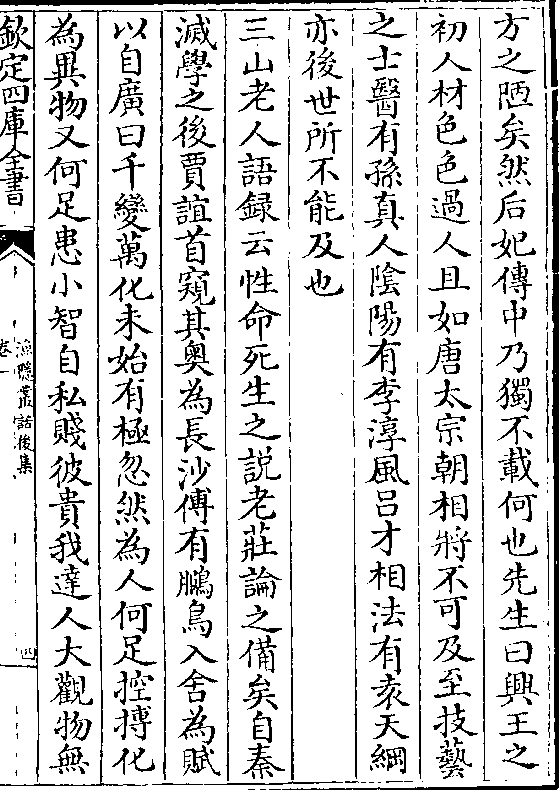 方之陋矣然后妃傳中乃獨不載何也先生曰興王之
初人材色色過人且如唐太宗朝相將不可及至技藝
之士醫有孫真人陰陽有李淳風呂才相法有袁天綱
亦後世所不能及也
三山老人語録云性命死生之説老莊論之備矣自秦
滅學之後賈誼首窺其奥為長沙傅有鵩鳥入舍為賦
以自廣曰千變萬化未始有極忽然為人何足控摶化
為異物又何足患小智自私賤彼貴我達人大觀物無
欽定四庫全書
漁隠叢話後集
卷一
四